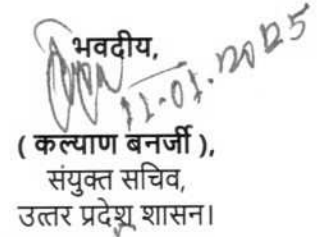 भवदीय,
11.01.2025
( कल्याण बनर्जी ),
संयुक्त सचिव,
उत्तर प्रदेश शासन।